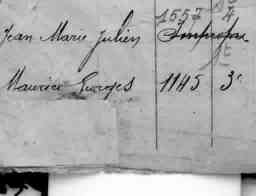 1557 A
Jean Marie Julien Impropre
Maurice Georges 1145 3e